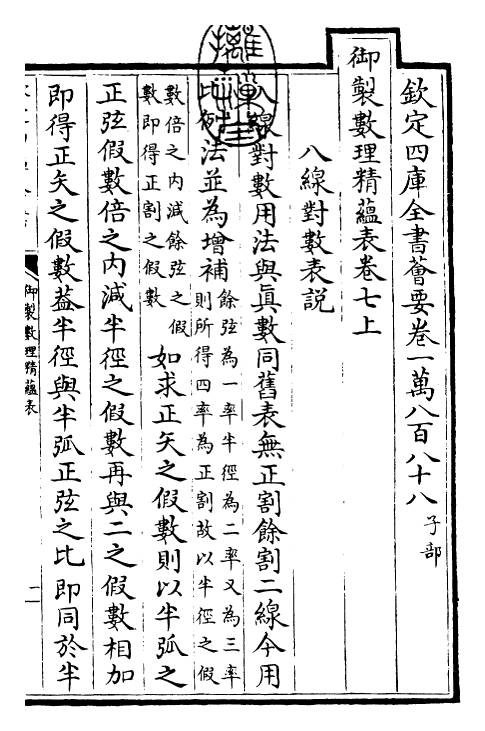 欽定四庫全書薈要卷一萬八百八十八 子部
御製數理精蘊表卷七上
八線對數表説
八線對數用法與真數同舊表無正割餘割二線今用
比例法並為增補餘弦為一率半徑為二率又為三率
則所得四率為正割故以半徑之假
數倍之内減餘弦之假
數即得正割之假數如求正矢之假數則以半弧之
正弦假數倍之内減半徑之假數再與二之假數相加
即得正矢之假數葢半徑與半弧正弦之比即同於半
御製數理精蘊表
一